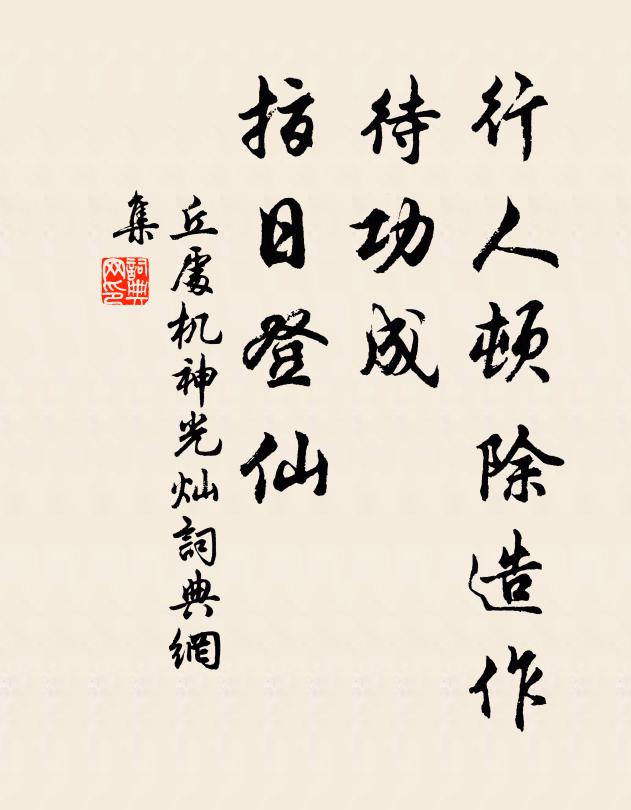 行人顿除造作
待功成
指日登仙
丘處机神光灿詞典網
集
詞典
网印